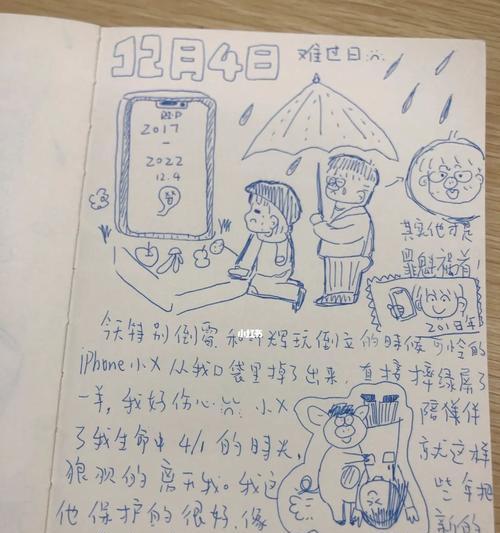 12月4日 难过日
R.I.P
2017
-
2022
12.4
其实他才是
罪魁祸首!
2018年
小红书
今天特别倒霉 和 辉玩倒立的時候 可怜的
iPhone小X 从我口袋里掉了出来, 直接摔绿屏了
一半, 我好伤心 小X 陪伴
了我生命中 4/1 的時光, 就这样
狠狠的离开我。我这些年把
他保护的很好, 像 新的